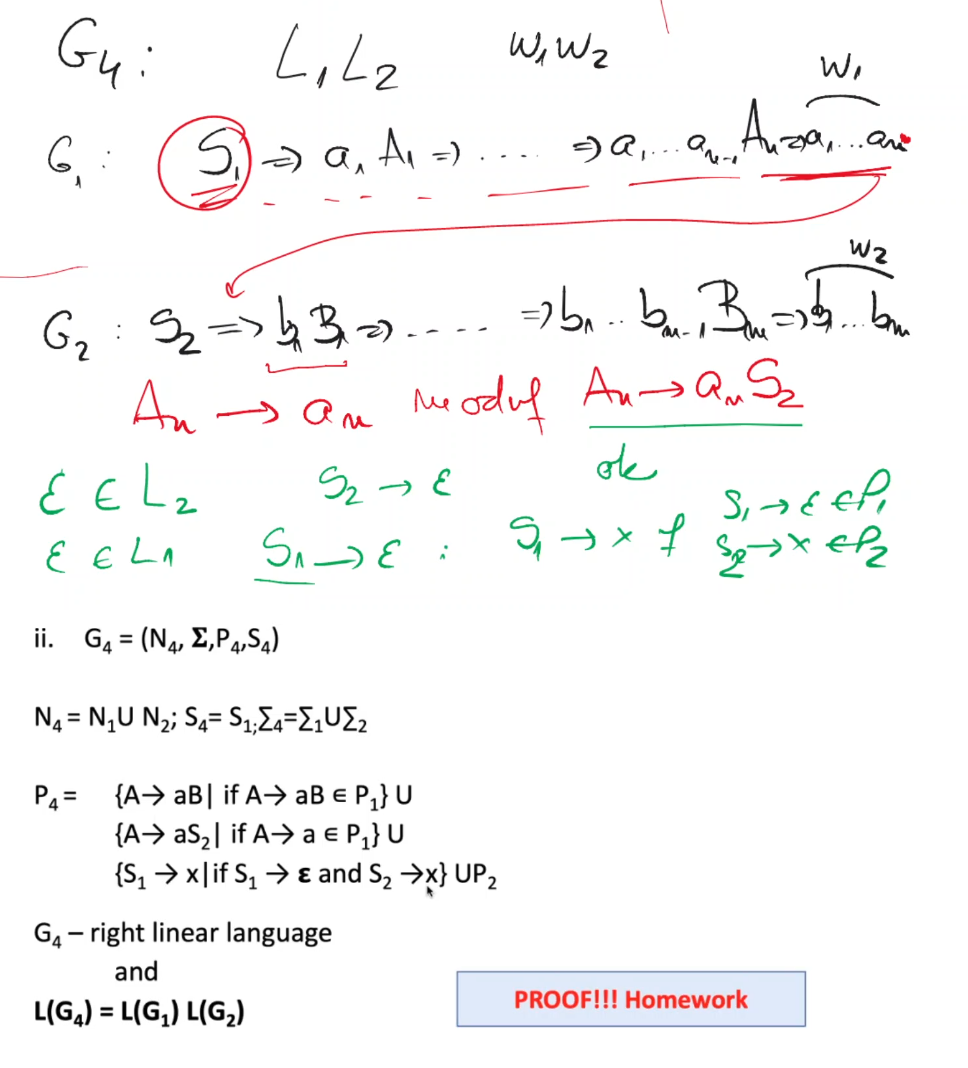 G₄: L₁L₂ w₁w₂
w₁
G₁: S₁ ⇒ a₁A₁ ⇒ .... ⇒ a₁...aₙ₋₁Aₙ ⇒ a₁...aₙ
w₂
G₂: S₂ ⇒ b₁B₁ ⇒ ..... ⇒ b₁..bₘ₋₁Bₘ ⇒ b₁...bₘ
Aₙ → aₙ Aₙ → aₙS₂
ok
ε ∈ L₂ S₂ → ε S₁ → ε ∈ P₁
ε ∈ L₁ S₁ → ε : S₁ → x if S₂ → x ∈ P₂
ii. G₄ = (N₄, Σ,P₄,S₄)
N₄ = N₁U N₂; S₄= S₁;Σ₄=Σ₁UΣ₂
P₄ = {A→ aB| if A→ aB ∈ P₁} U
{A→ aS₂| if A→ a ∈ P₁} U
{S₁ → x|if S₁ → ε and S₂ →x} UP₂
G₄ – right linear language
and
L(G₄) = L(G₁) L(G₂)
PROOF!!! Homework